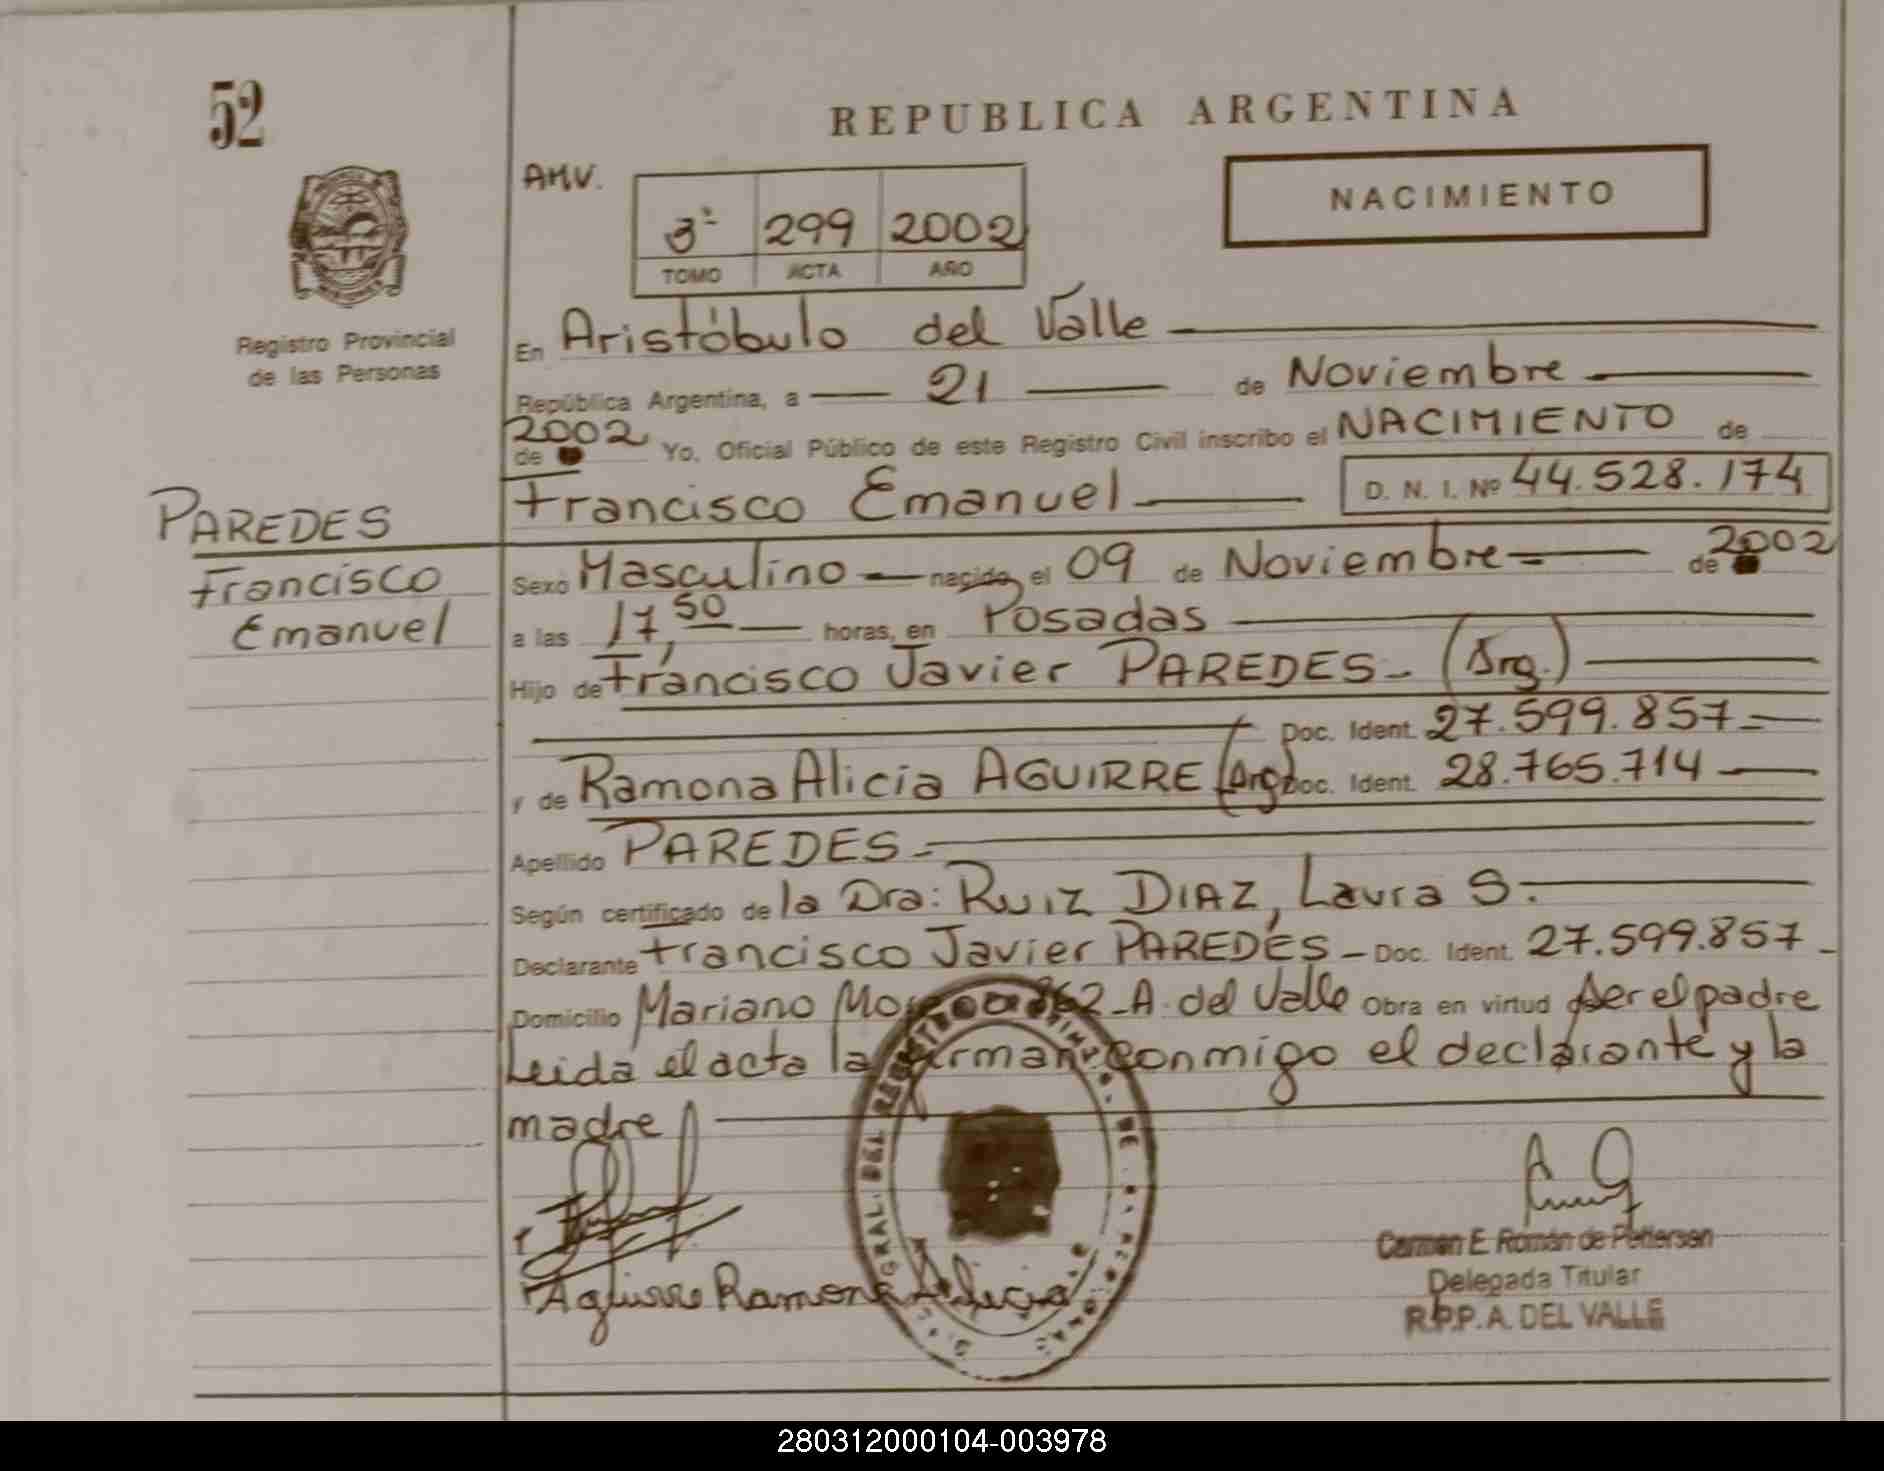 52
REPUBLICA ARGENTINA
AMV.
3º 299 2002
TOMO ACTA AÑO
NACIMIENTO
Registro Provincial
de las Personas
En Aristóbulo del Valle
República Argentina, a 21 de Noviembre
2002
de Yo, Oficial Público de este Registro Civil inscribo el NACIMIENTO de
Francisco Emanuel D. N. I. Nº 44.528.174
PAREDES
Francisco
Emanuel
Sexo Masculino nacido el 09 de Noviembre de 2002
a las 17,50 horas, en Posadas
Hijo de Francisco Javier PAREDES - (Arg.)
Doc. Ident. 27.599.857
y de Ramona Alicia AGUIRRE (Arg) Doc. Ident. 28.765.714
Apellido PAREDES
Según certificado de la Dra: RUIZ DIAZ, Laura S.
Declarante Francisco Javier PAREDES - Doc. Ident. 27.599.857
Domicilio Mariano 862 - A. del Valle Obra en virtud ser el padre
Leida el acta la firman conmigo el declarante y la
madre
Aguirre Ramona Alicia
Carmen E. Román de Pettersen
Delegada Titular
R.P.P. A. DEL VALLE
280312000104-003978